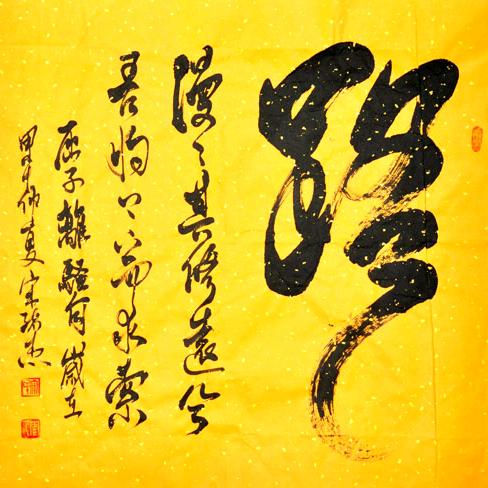 路
漫漫其修远兮
吾将上下而求索
屈子离骚句岁在
甲午仲夏宋